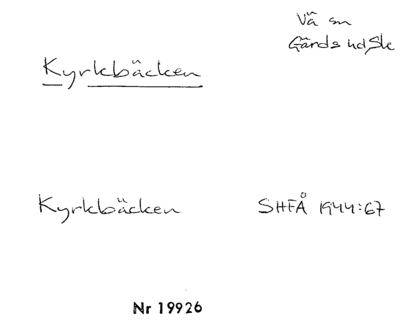 Vä sn
Gärds hd Sk
Kyrkbäcken
Kyrkbäcken SHFÅ 1944:67
Nr 19926